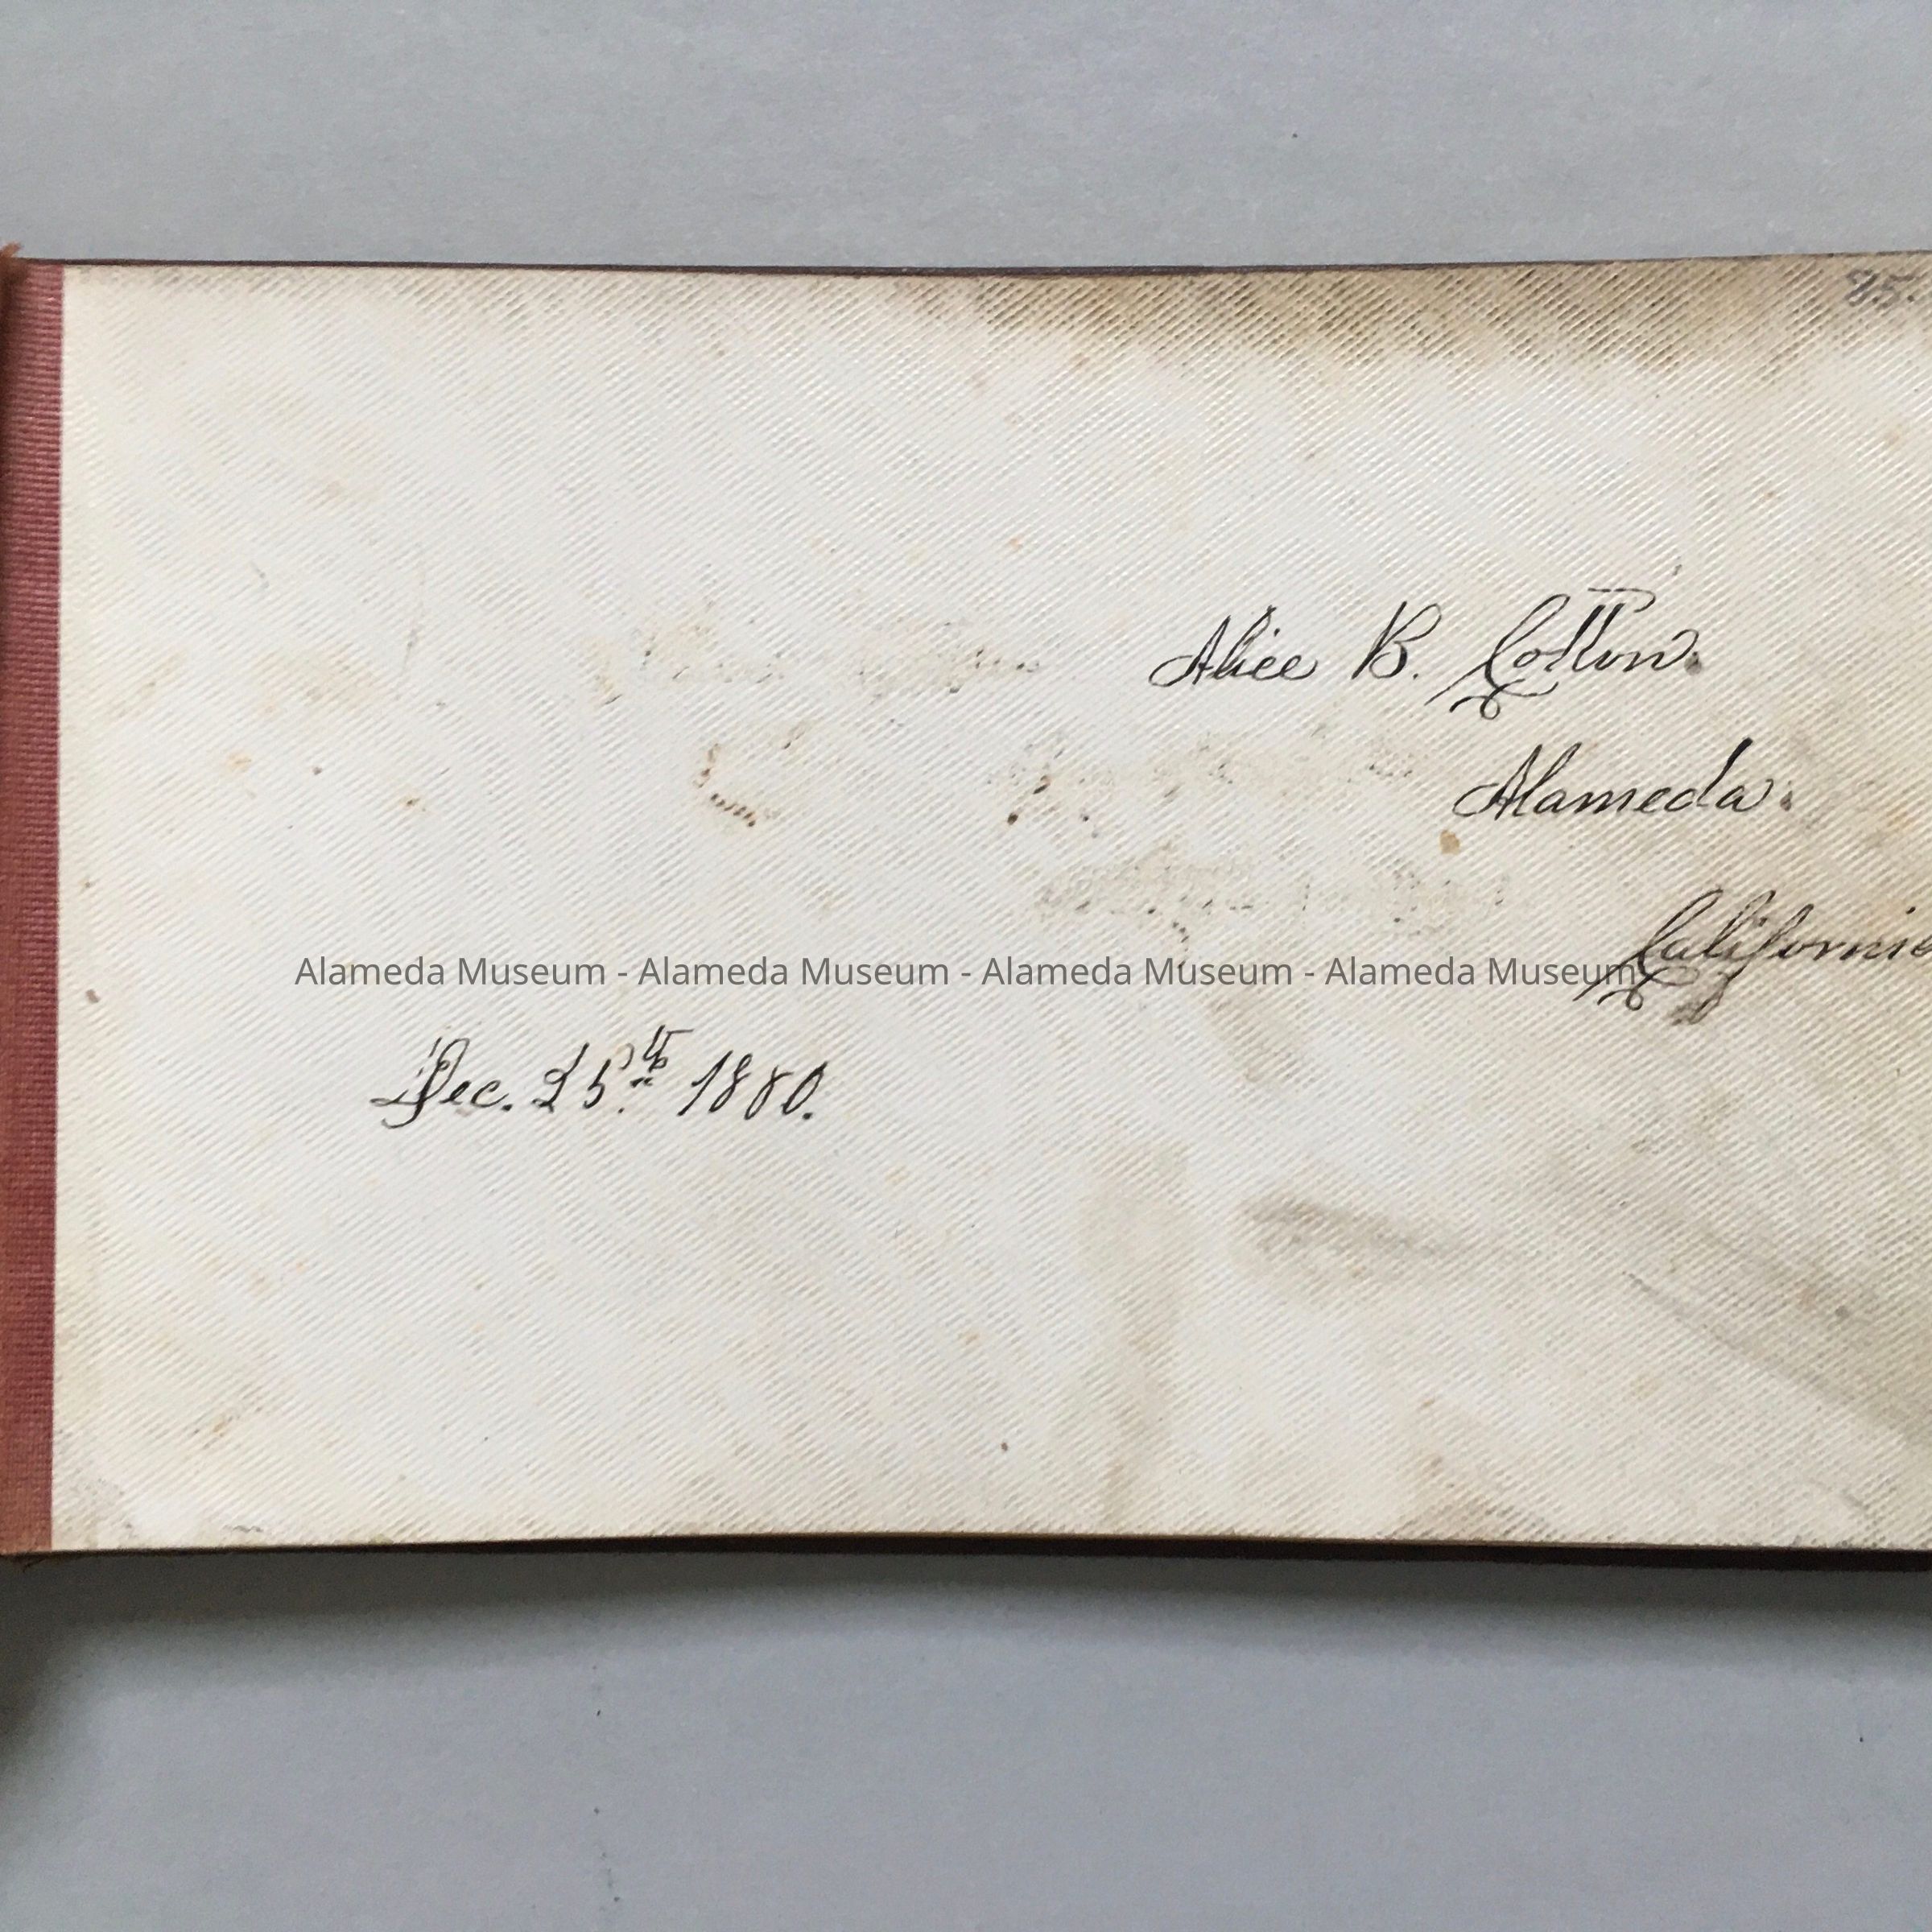 85.
Alice B. Cotton.
Alameda.
California
Alameda Museum - Alameda Museum - Alameda Museum - Alameda Museum
Dec. 25th 1880.